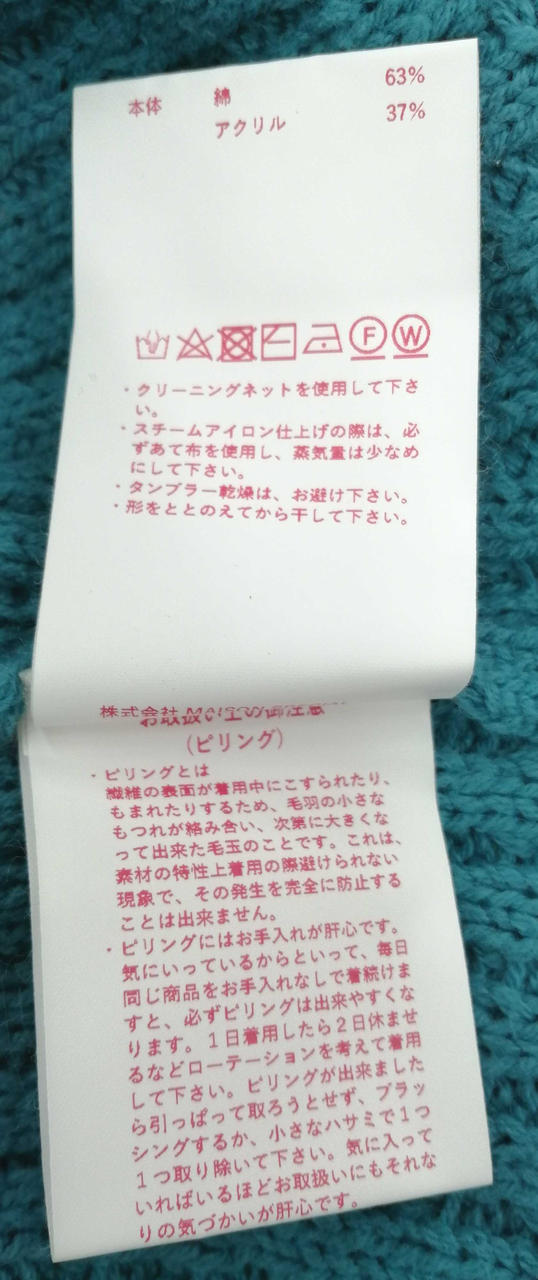 本体 綿 63%
アクリル 37%
F W
・クリーニングネットを使用して下さ
い。
・スチームアイロン仕上げの際は、必
ずあて布を使用し、蒸気量は少なめ
にして下さい。
・タンブラー乾燥は、お避け下さい。
・形をととのえてから干して下さい。
株式会社
お取扱い上の御注意
(ピリング)
・ピリングとは
繊維の表面が着用中にこすられたり、
もまれたりするため、毛羽の小さな
もつれが絡み合い、次第に大きくな
って出来た毛玉のことです。これは、
素材の特性上着用の際避けられない
現象で、その発生を完全に防止する
ことは出来ません。
・ピリングにはお手入れが肝心です。
気にいっているからといって、毎日
同じ商品をお手入れなしで着続けま
すと、必ずピリングは出来やすくな
ります。1日着用したら2日休ませ
るなどローテーションを考えて着用
して下さい。ピリングが出来ました
ら引っぱって取ろうとせず、ブラッ
シングするか、小さなハサミで1つ
1つ取り除いて下さい。気に入って
いればいるほどお取扱いにもそれな
りの気づかいが肝心です。